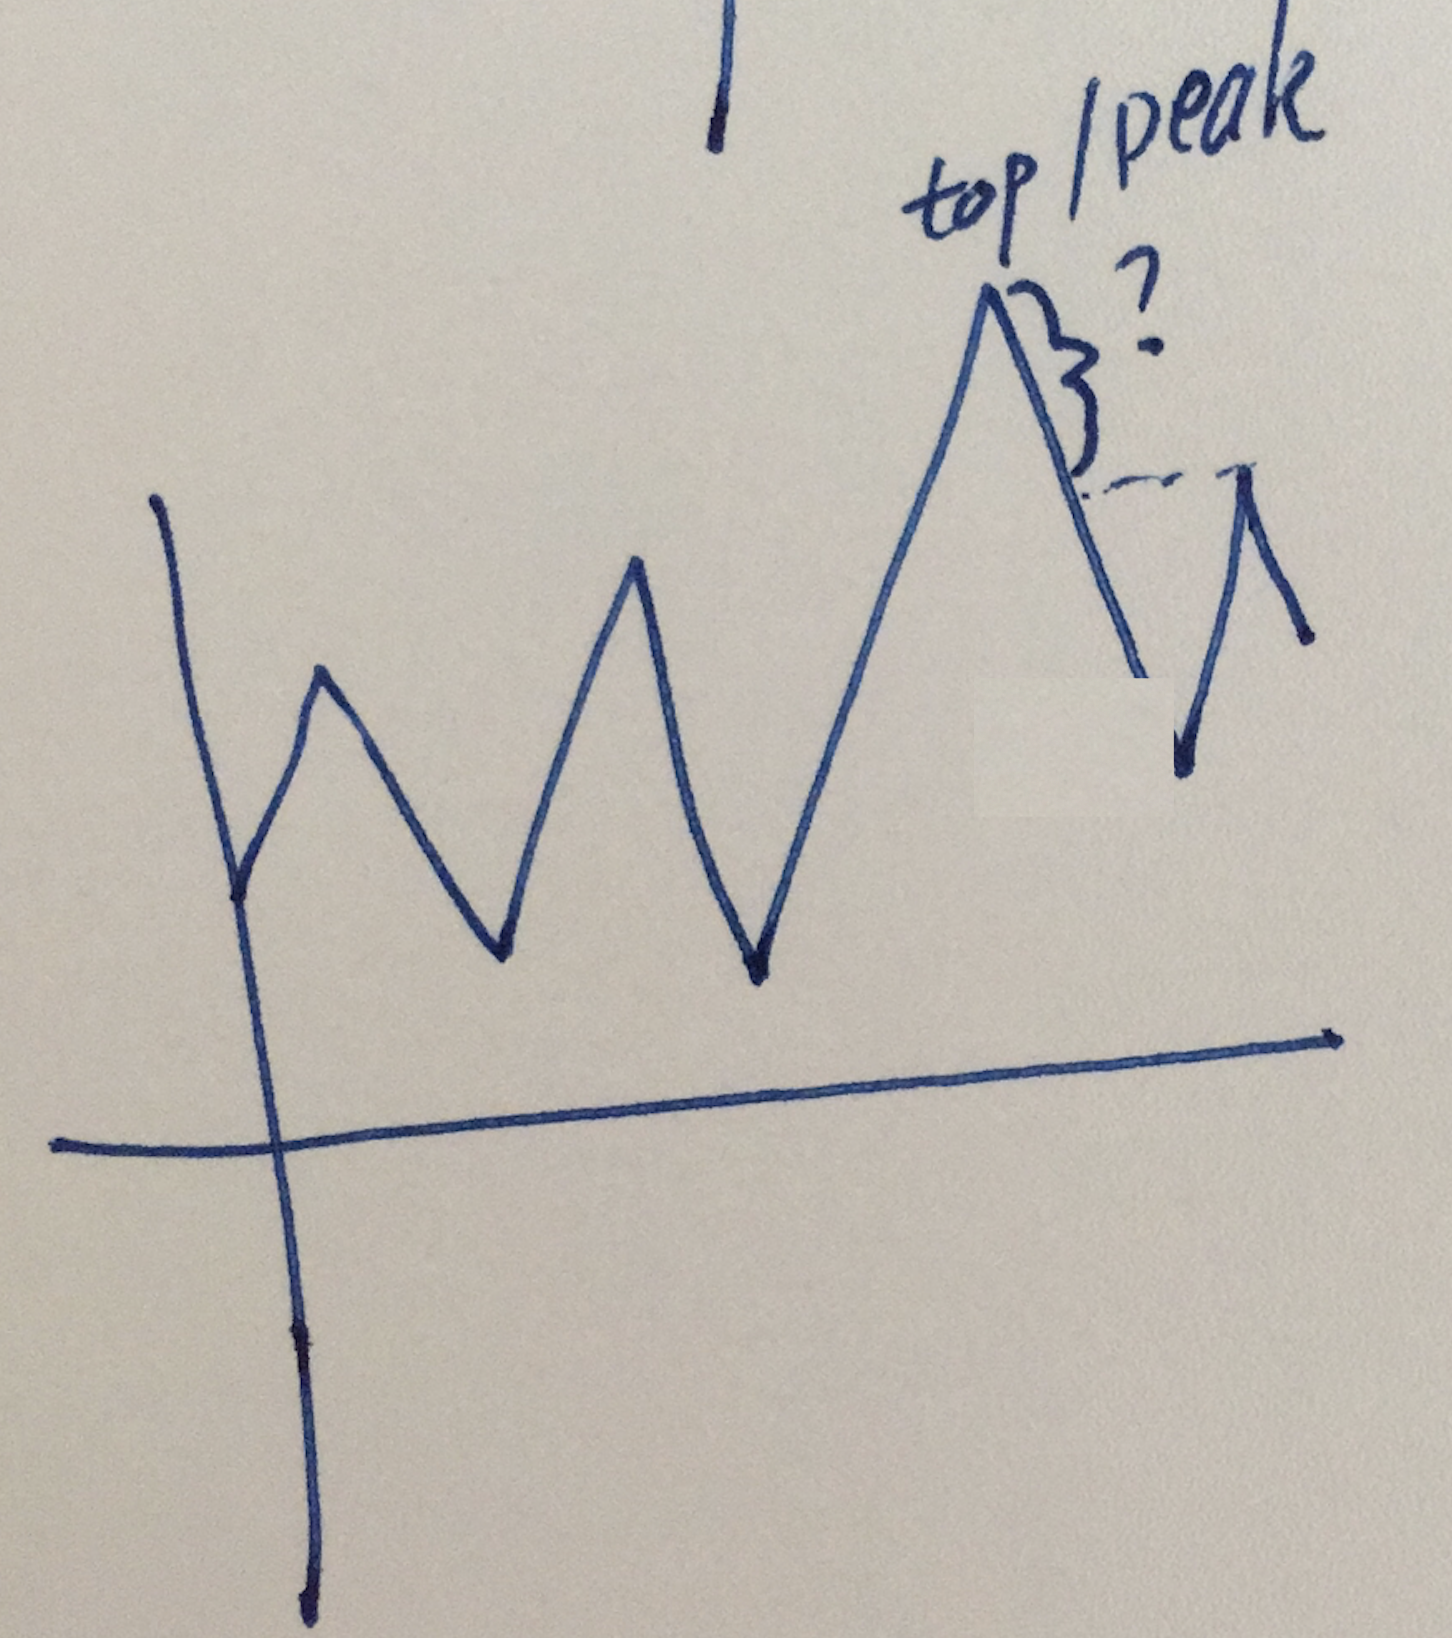 top/peak
?